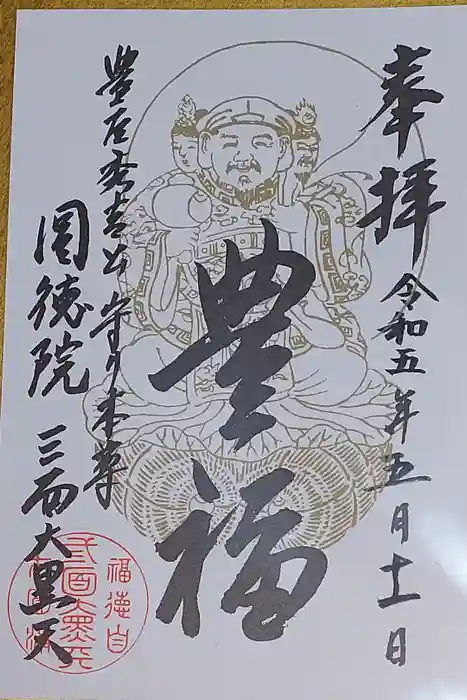 奉拝
令和五年五月十一日
豊福
豊臣秀吉公守り本尊
圓徳院 三面大黒天
福徳自
三面大黒天